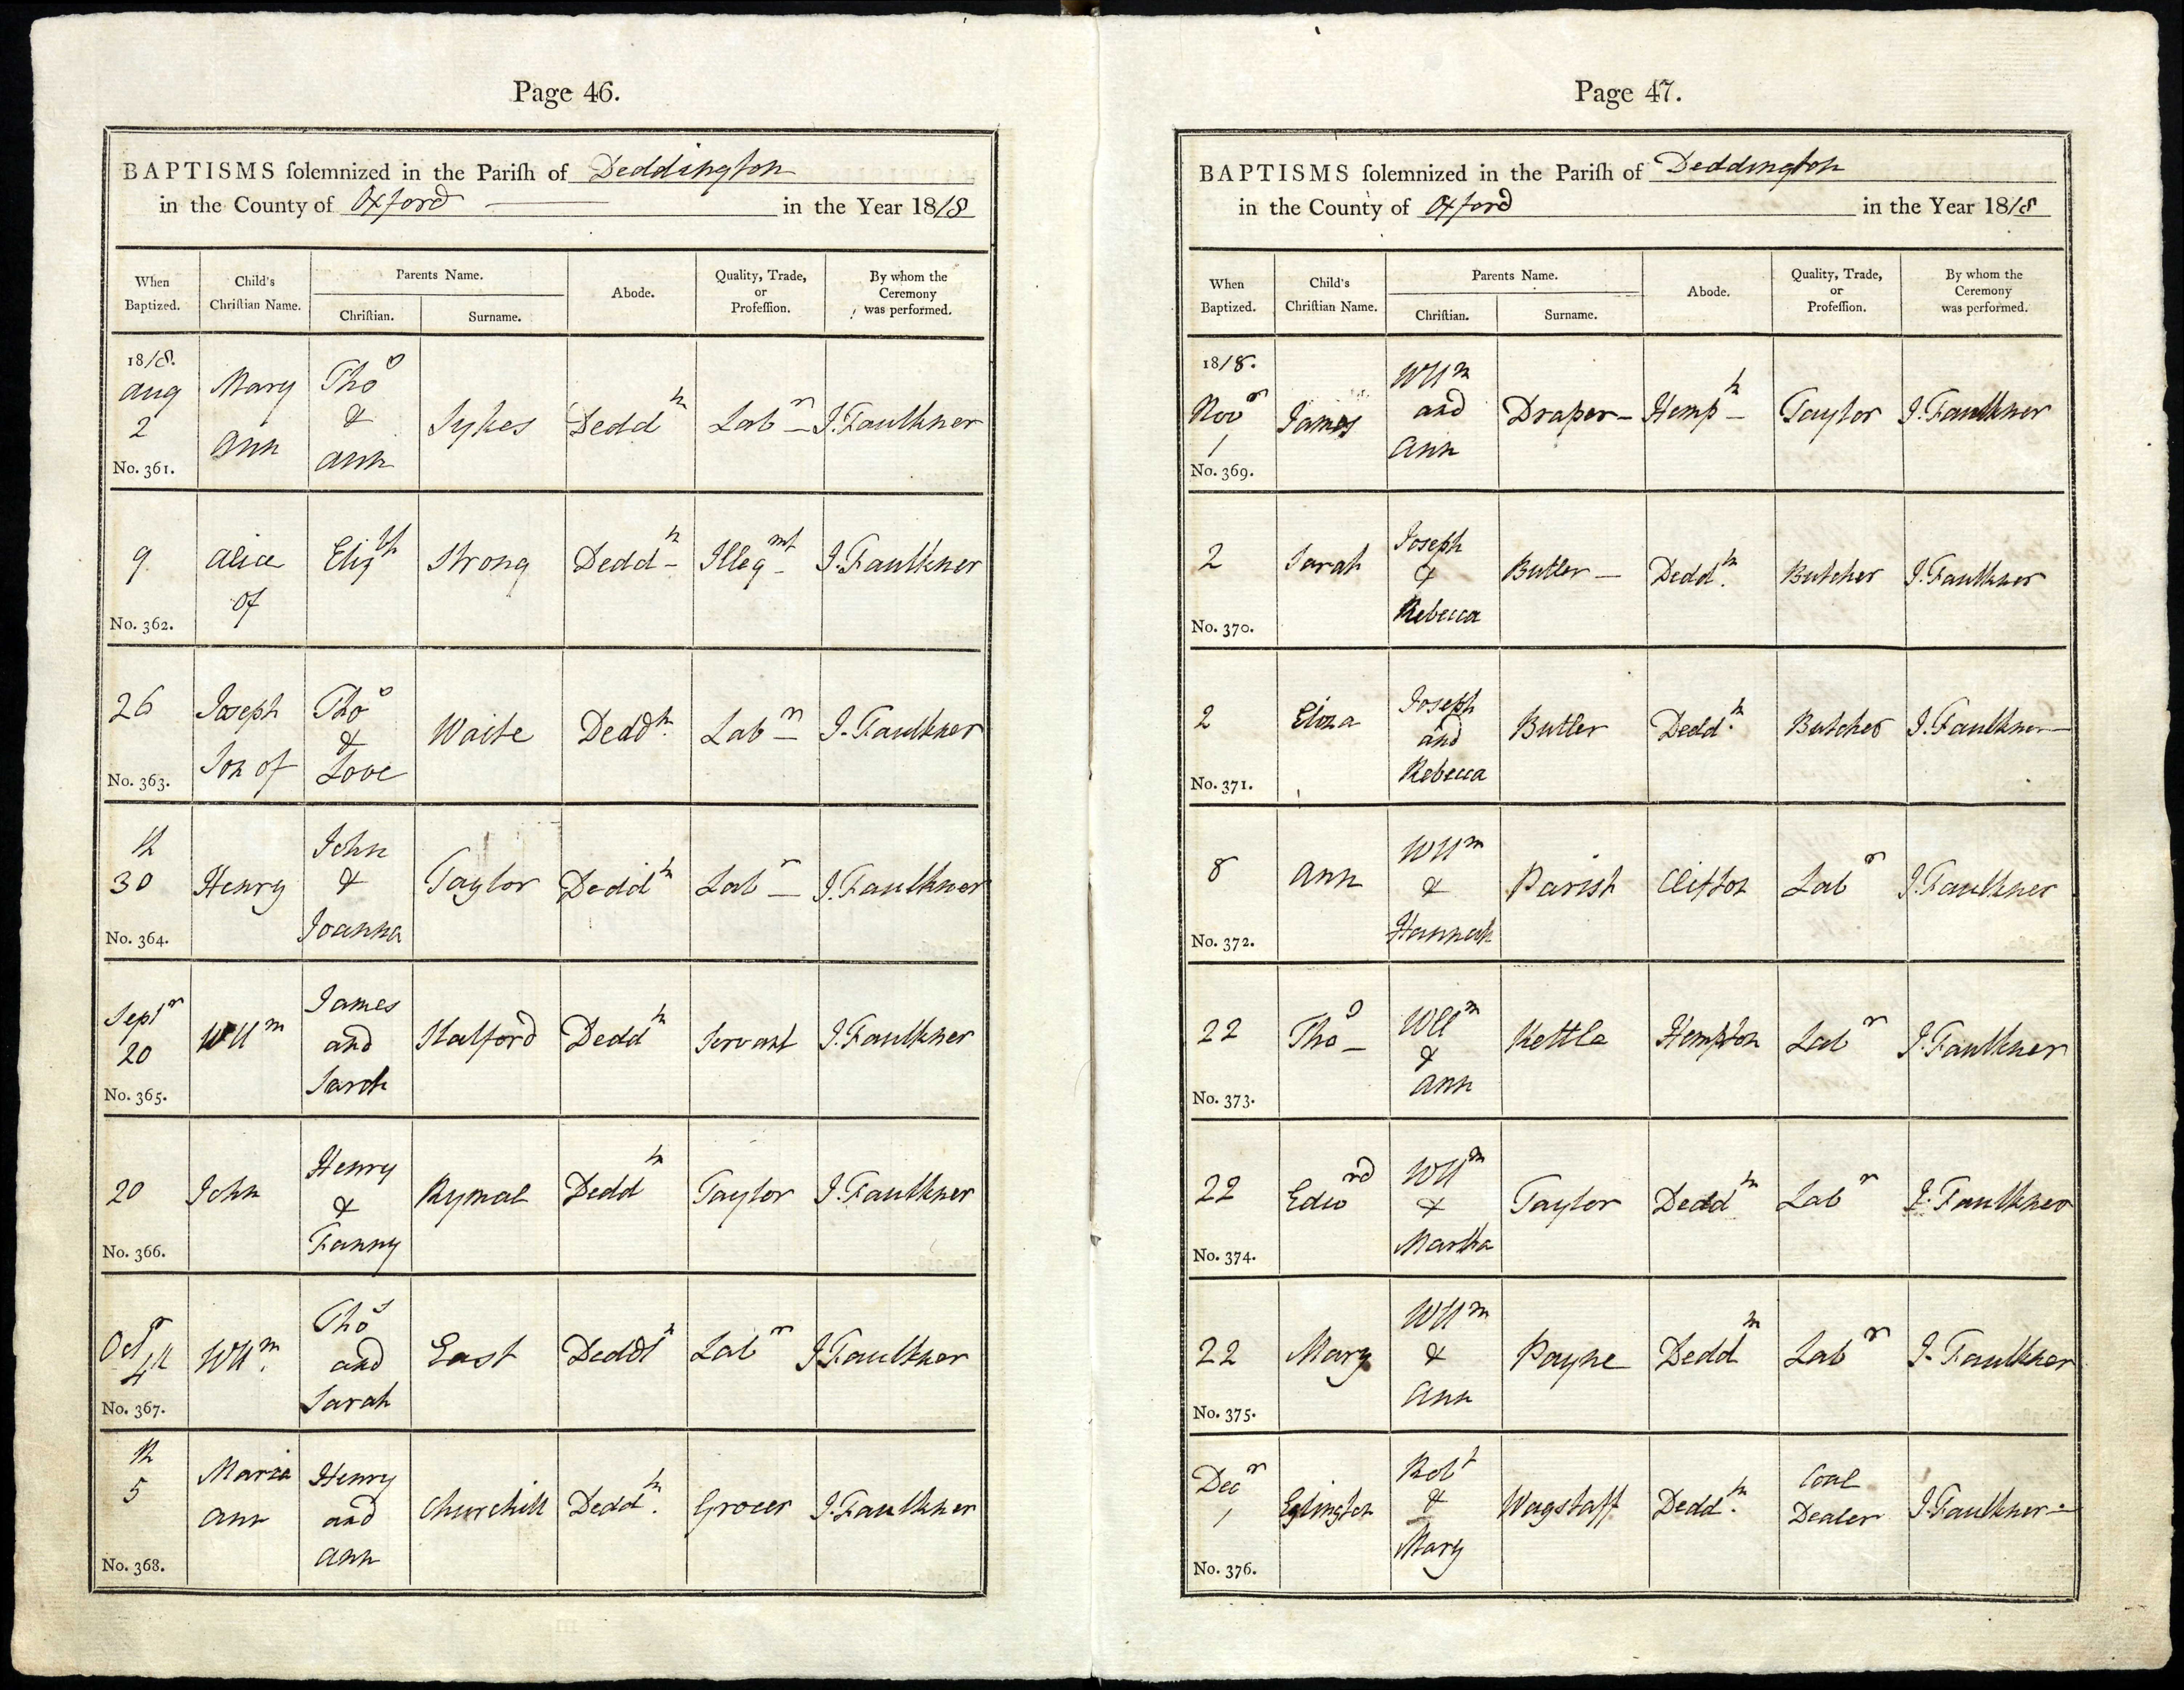 Page 46.
BAPTISMS solemnized in the Parish of Deddington
in the County of Oxford in the Year 1818
When Baptized. Child's Christian Name. Parents Name. Christian. Surname. Abode. Quality, Trade, or Profession. By whom the Ceremony was performed.
1818. Aug 2 No. 361. Mary Ann Thos & Ann Sykes Deddn Labr J. Faulkner
9 No. 362. Alice of Elizth Strong Deddn Illegmt J. Faulkner
26 No. 363. Joseph Son of Thos & Love Waite Deddn Labr J. Faulkner
30 No. 364. Henry John & Joanna Taylor Deddn Labr J. Faulkner
Septr 20 No. 365. Willm James and Sarah Halford Deddn Servant J. Faulkner
20 No. 366. John Henry & Fanny Rymal Deddn Taylor J. Faulkner
Octr 4 No. 367. Willm Thos and Sarah East Deddn Labr J. Faulkner
5 No. 368. Maria Ann Henry and Ann Churchill Deddn Grocer J. Faulkner
Page 47.
BAPTISMS solemnized in the Parish of Deddington
in the County of Oxford in the Year 1818
When Baptized. Child's Christian Name. Parents Name. Christian. Surname. Abode. Quality, Trade, or Profession. By whom the Ceremony was performed.
1818. Novr 1 No. 369. James Willm and Ann Draper Hempn Taylor J. Faulkner
2 No. 370. Sarah Joseph & Rebecca Butler Deddn Butcher J. Faulkner
2 No. 371. Eliza Joseph and Rebecca Butler Deddn Butcher J. Faulkner
8 No. 372. Ann Willm & Hannah Parish Clifton Labr J. Faulkner
22 No. 373. Thos Willm & Ann Kettle Hempton Labr J. Faulkner
22 No. 374. Edwrd Willm & Martha Taylor Deddn Labr J. Faulkner
22 No. 375. Mary Willm & Ann Payne Deddn Labr J. Faulkner
Decr 1 No. 376. Eglington Robt & Mary Wagstaff Deddn Coal Dealer J. Faulkner